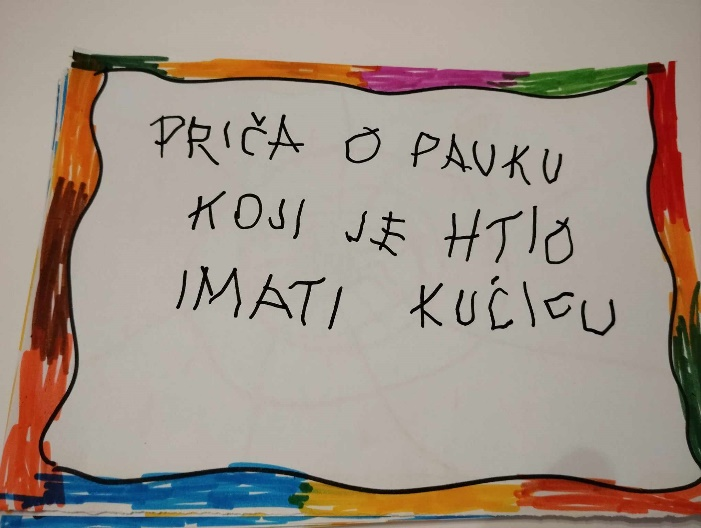 PRIČA O PAUKU
KOJI JE HTIO
IMATI KUĆICU